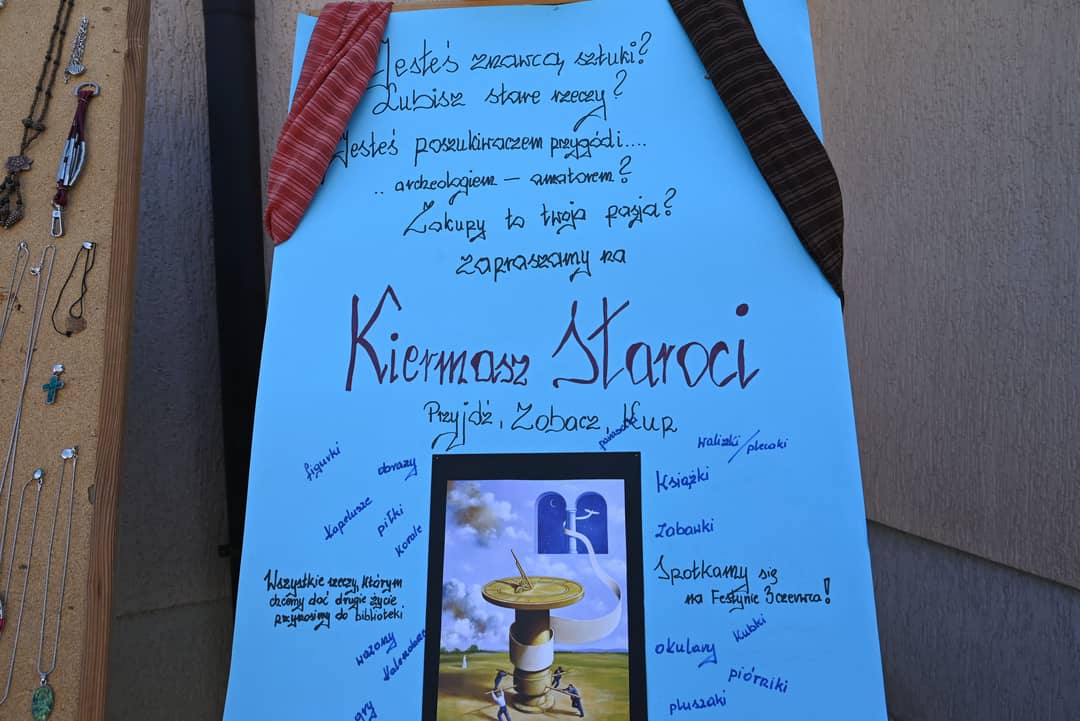 Jesteś znawcą sztuki?
Lubisz stare rzeczy?
Jesteś poszukiwaczem przygódi....
.. archeologiem – amatorem?
Zakupy to twoja pasja?
zapraszamy na
Kiermasz Staroci
Przyjdź, Zobacz, Kup
figurki
obrazy
parasole
walizki/plecaki
Kapelusze
piłki
korale
Książki
Zabawki
Wszystkie rzeczy, którym
chcemy dać drugie życie
przynosimy do biblioteki
Spotkamy się
na Festynie 3 czerwca!
wazony
okulary
kubki
piórniki
pluszaki
gry